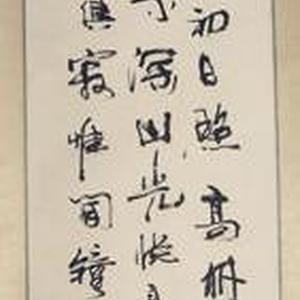 初日照高林
深山光悦鳥
俱寂惟聞鐘